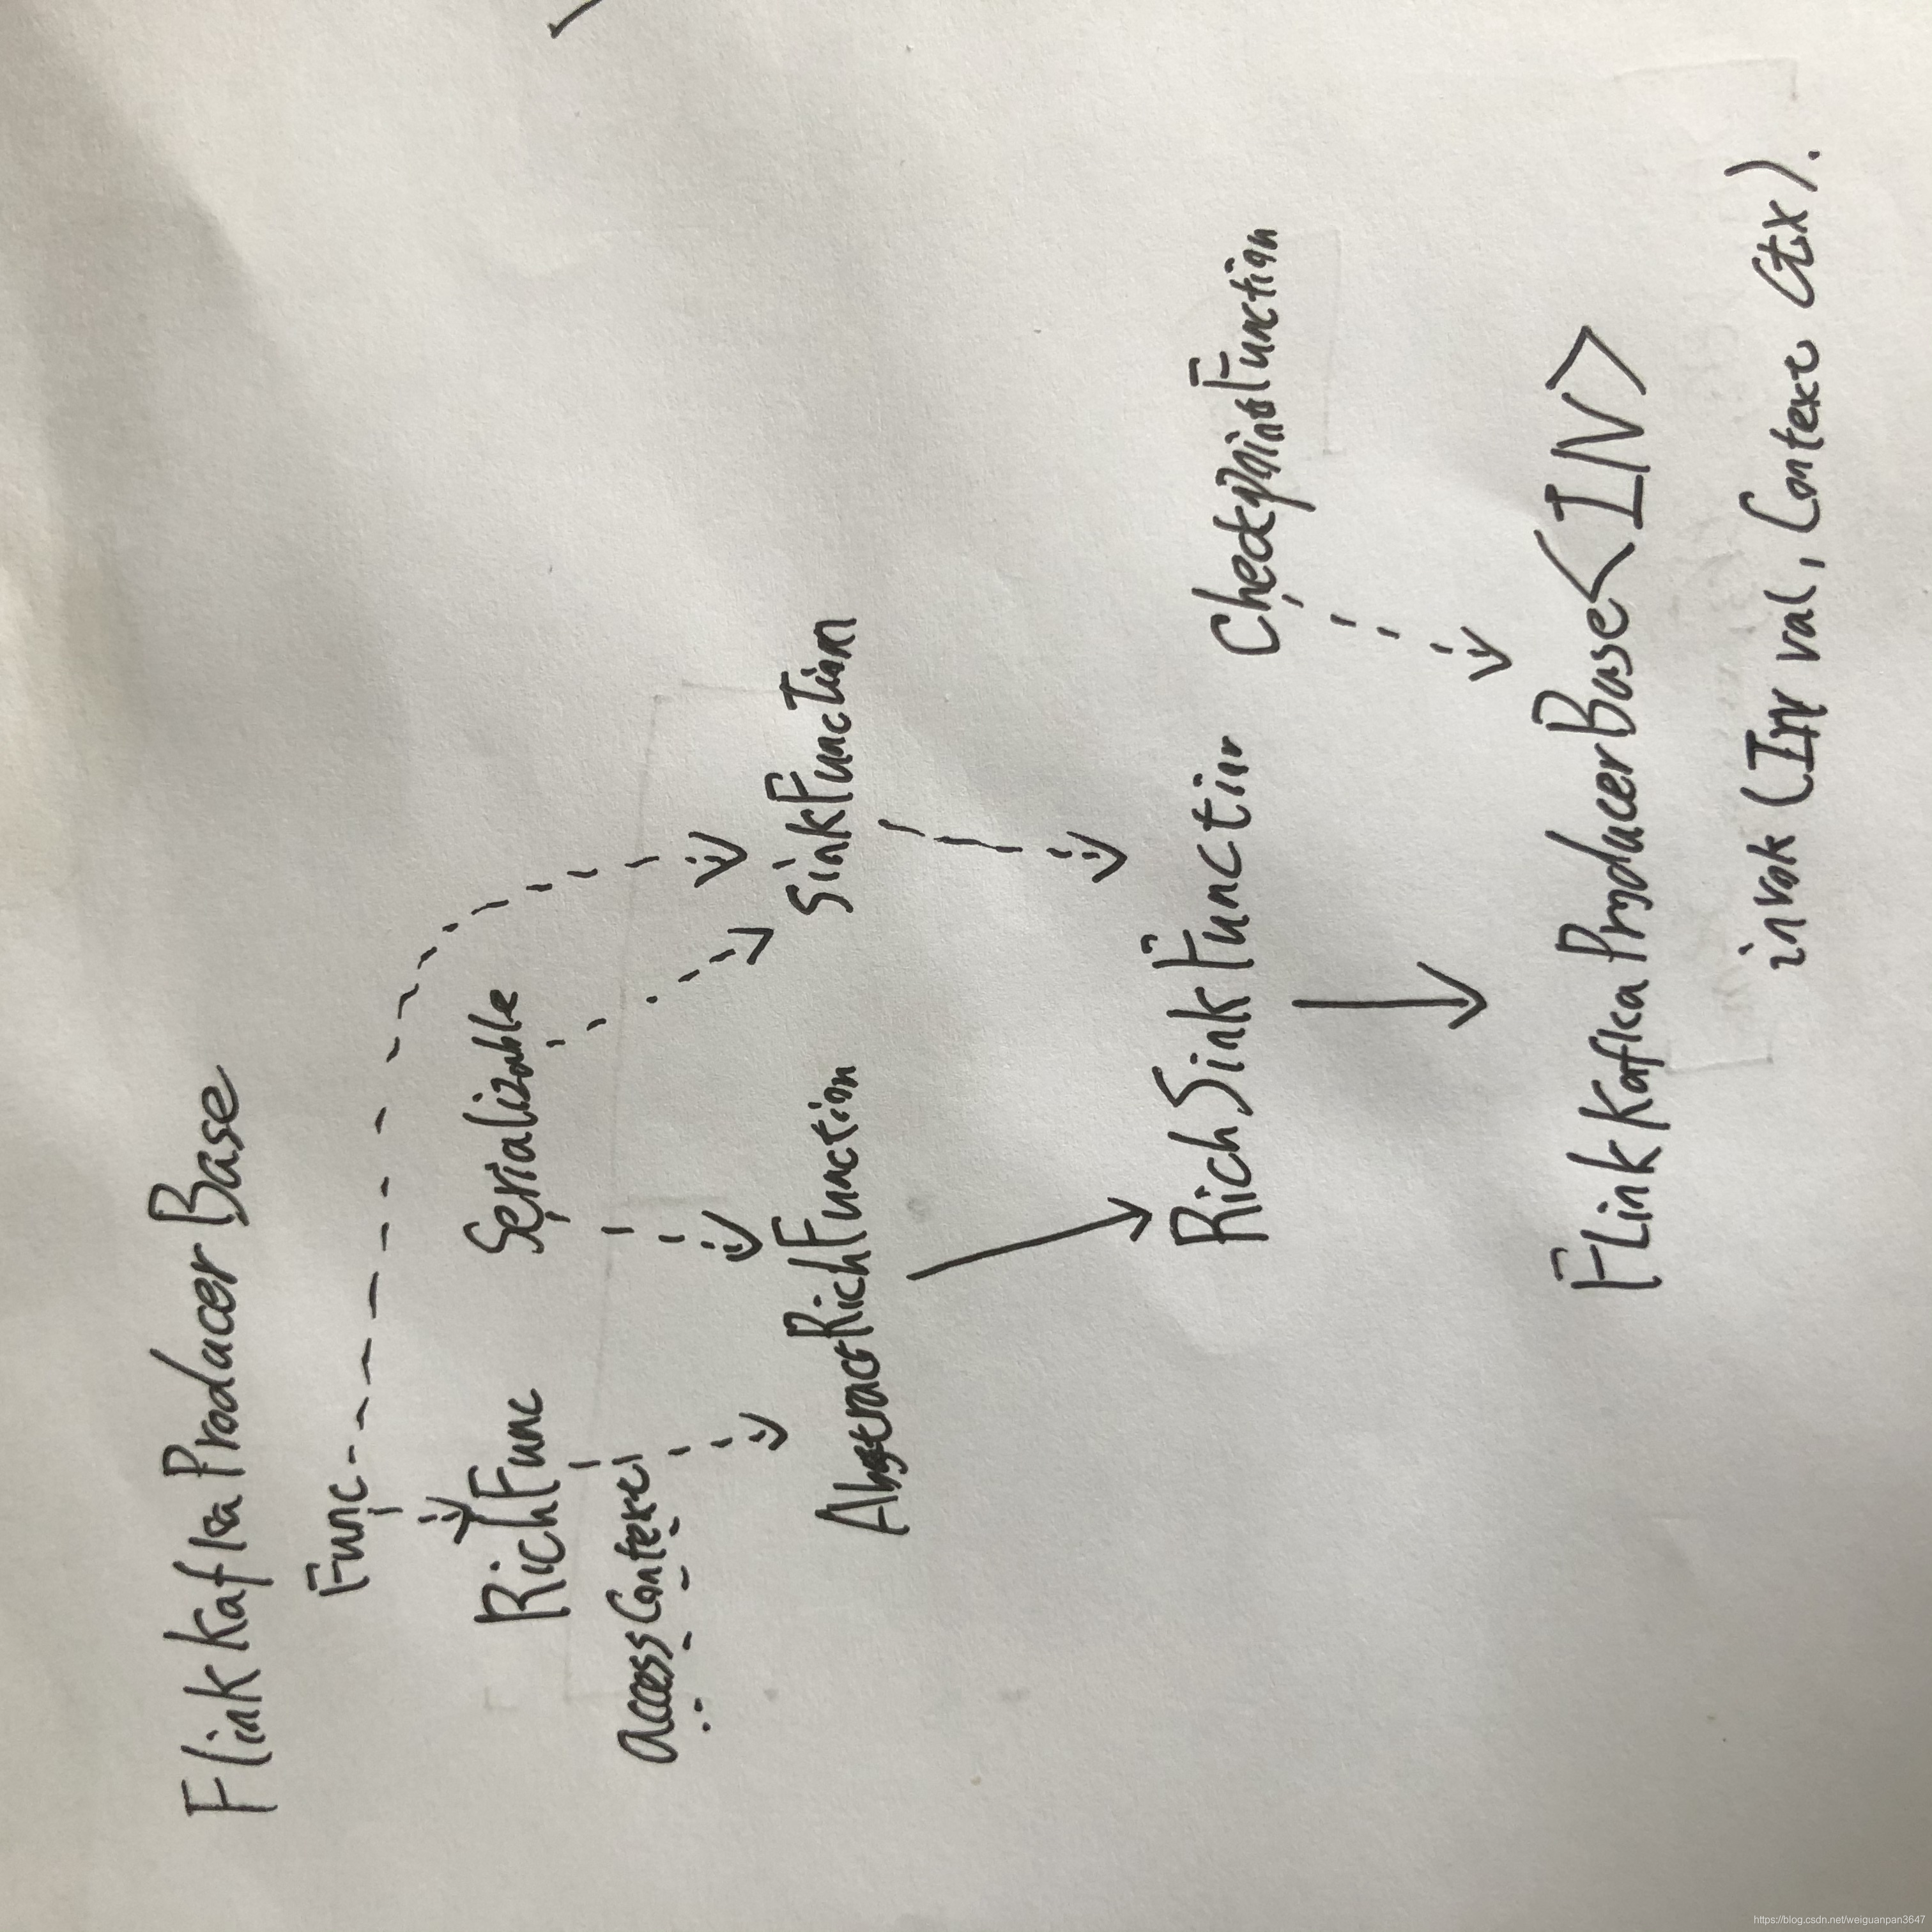 FlinkKafkaProducerBase
Func
RichFunc Serializable
accessContext
AbstractRichFunction SinkFunction
RichSinkFunction CheckpointFunction
FLinkKafkaProducerBase<IN>
invok (IN val, Context Ctx).
https://blog.csdn.net/weiguanpan3647